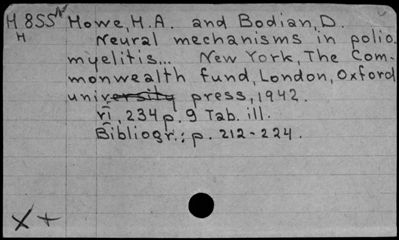 M 855 Howe, H.A. and Bodian, D.
H Neural mechanisms in polio
myelitis... New York, The Com-
monwealth fund, London, Oxford
university press, 1942.
vi, 234 p. 9 Tab. ill.
Bibliogr.: p. 212-224.
X +